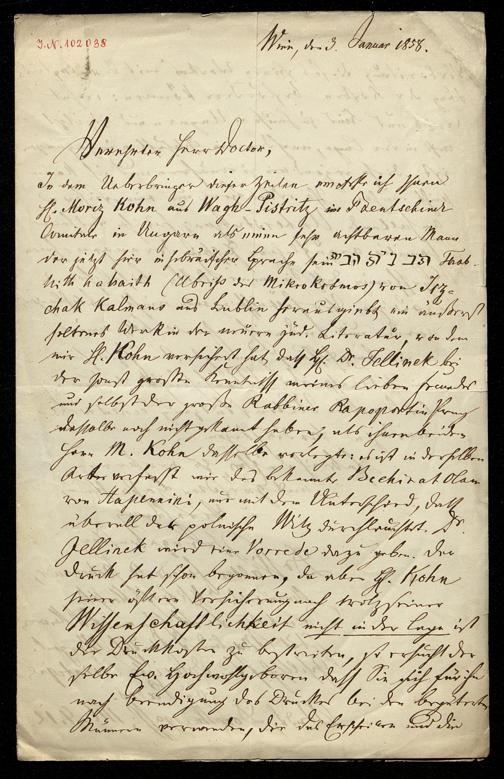 J.N. 102038
Wien, den 3. Januar 1858.
Verehrter Herr Doctor,
In dem Ueberbringer dieser Zeilen ich Ihnen
H. Moriz Kohn aus Wagh-Pistritz im Trentschiner
Comitate in Ungarn als einen sehr achtbaren Mann
der jetzt hier in hebräischer Sprache sein Thab-
nith habaith (Abriß des Mikrokosmos) von Isz-
chak Kalmans aus Lublin herausgiebt ein äußerst
seltenes Werk in der neueren jüd. Literatur, von dem
mir H. Kohn versichert hat daß H. Dr. Jellinek bei
der sonst großen Kenntniß meines lieben Freundes
und selbst der große Rabbiner Rapoport in Prag
dasselbe noch nicht gekannt haben, als ihnen beiden
Herr M. Kohn dasselbe vorlegte: es ist in derselben
Art verfasst wie das bekannte Bechinat Olam
von Hapennini, nur mit dem Unterschied, daß
überall der polnische Witz durchleuchtet. Dr.
Jellinek wird eine Vorrede dazu geben. Der
Druck hat schon begonnen, da aber H. Kohn
seiner Versicherung nach trotz seiner
Wissenschaftlichkeit nicht in der Lage ist
die Druckkosten zu bestreiten, so ersucht der
selbe Ew. Hochwohlgeboren daß Sie sich für ihn
nach Beendigung des Druckes bei den begüterten
Männern verwenden, die das Erscheinen und die